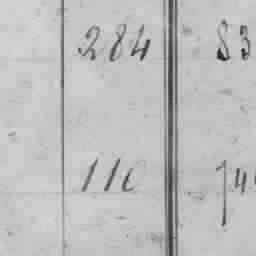 284 83
110 74